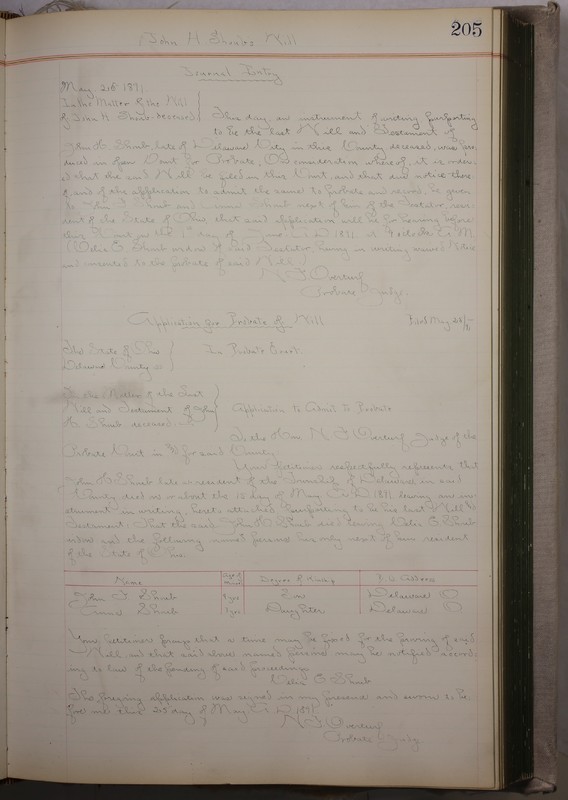 205
John H. Shoubs Will
Journal Entry
May 26 1891
In the Matter of the Will
of John H. Shoub deceased
This day an instrument of writing purporting
to be the last Will and Testament of
John H. Shoub late of Delaware City in this County deceased, was pro
duced in open Court for Probate, On consideration whereof, it is order
ed that the said Will be filed in this Court, and that due notice there
of, and of the application to admit the same to probate and record, be given
to John Shoub and Shoub next of kin of the Testator, resi
dent of the State of Ohio, that said application will be for hearing before
this Court on the day of 1891, at 9 o'clock A.M.
Shoub widow of said Testator having in writing waived notice
and consented to the probate of said Will
Probate Judge.
Application for Probate of Will
Filed May
The State of Ohio
Delaware County
In Probate Court.
In the Matter of the Last
Will and Testament of John
H. Shoub deceased
Application to Admit to Probate
To the Hon. Judge of the
Probate Court in & for said County
Your Petitioner respectfully represents that
John H. Shoub late a resident of the Township of Delaware in said
County died on or about the 15 day of May A.D. 1891 leaving an in
strument in writing, hereto attached purporting to be his last Will &
Testament; That the said John H. Shoub died leaving Shoub
widow and the following named persons his only next of kin resident
of the State of Ohio.
Name Degree of Kinship P.O. Address
John Shoub Son Delaware O
Shoub Daughter Delaware O
Your Petitioner prays that a time may be fixed for the proving of said
Will, and that said above named persons may be notified accord
ing to law of the pendency of said proceedings
Shoub
The foregoing application was signed in my presence and sworn to be
fore me this 25 day of May A.D. 1891
Probate Judge